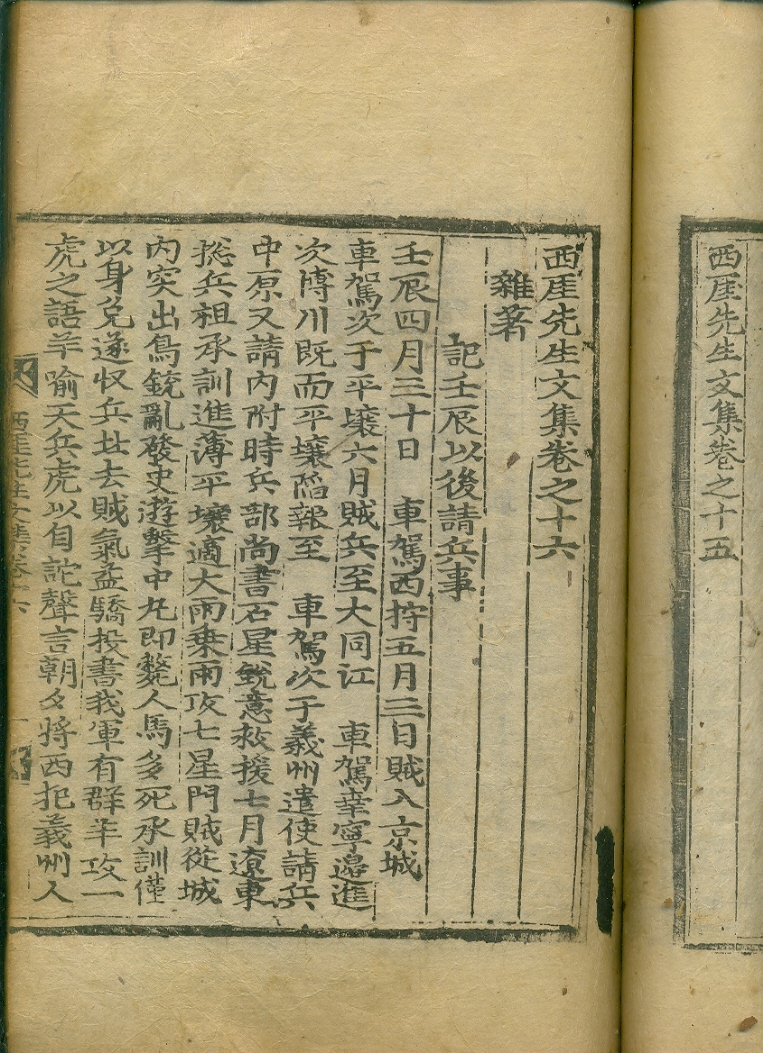 西厓先生文集卷之十五
西厓先生文集卷之十六
雜著
記壬辰以後請兵事
壬辰四月三十日 車駕西狩五月三日賊入京城
車駕次于平壤六月賊兵至大同江 車駕幸寧邊進
次博川既而平壤陷報至 車駕次于義州遣使請兵
中原又請內附時兵部尚書石星銳意救援七月遼東
摠兵祖承訓進薄平壤適大雨乗雨攻七星門賊從城
內突出鳥銃亂發史遊擊中丸即斃人馬多死承訓僅
以身免遂収兵北去賊氣益驕投書我軍有群羊攻一
虎之語羊喻天兵虎以自詑聲言朝夕將西犯義州人
西厓先生文集卷十六